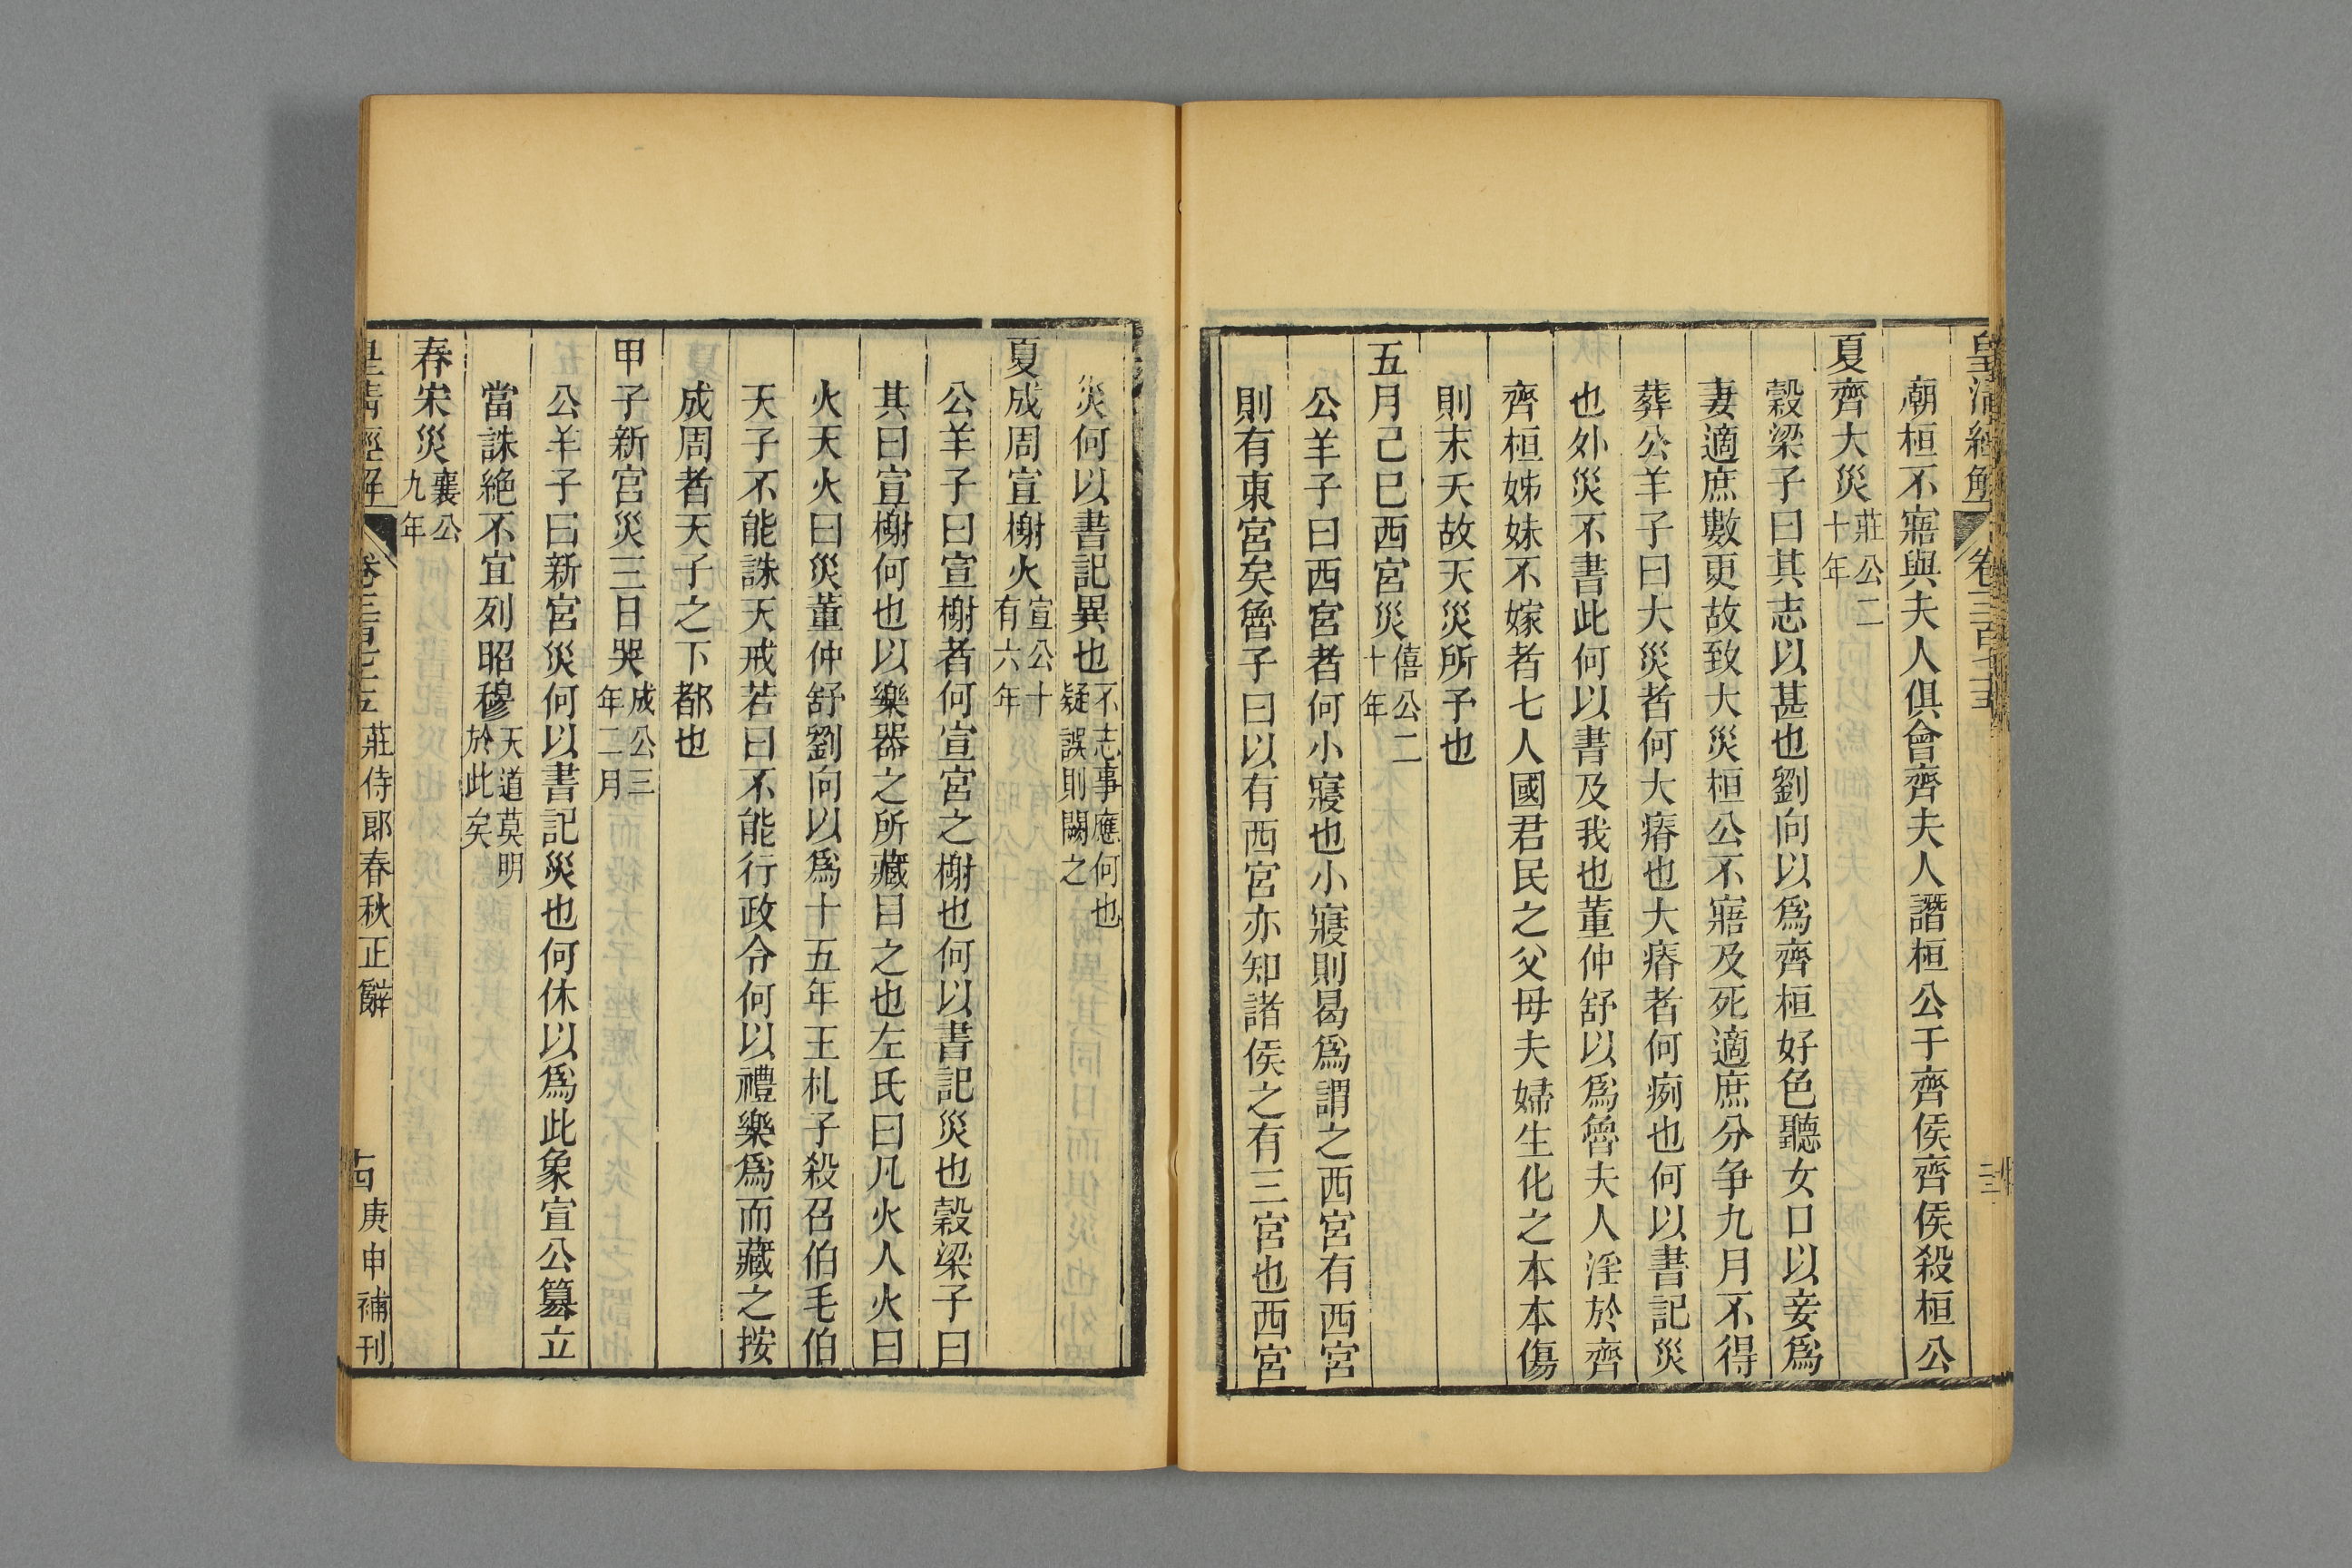 皇清經解 卷三百七十五
朝桓不寤與夫人俱會齊夫人譖桓公于齊侯齊侯殺桓公
夏齊大災莊公二十年
穀梁子曰其志以甚也劉向以爲齊桓好色聽女口以妾爲
妻適庶數更故致大災桓公不寤及死適庶分争九月不得
葬公羊子曰大災者何大瘠也大瘠者何㾐也何以書記災
也外災不書此何以書及我也董仲舒以爲魯夫人淫於齊
齊桓姊妹不嫁者七人國君民之父毋夫婦生化之本本傷
則末夭故天災所予也
五月己巳西宮災僖公二十年
公羊子曰西宮者何小寢也小寢則曷爲謂之西宮有西宮
則有東宮矣魯子曰以有西宮亦知諸侯之有三宮也西宮
災何以書記異也不志事應何也疑誤則闕之
夏成周宣榭火宣公十有六年
公羊子曰宣榭者何宣宮之榭也何以書記災也穀梁子曰
其曰宣榭何也以樂器之所藏目之也左氏曰凡火人火曰
火天火曰災董仲舒劉向以爲十五年王札子殺召伯毛伯
天子不能誅天戒若曰不能行政令何以禮樂爲而藏之按
成周者天子之下都也
甲子新宮災三日哭成公三年二月
公羊子曰新宮災何以書記災也何休以爲此象宣公篡立
當誅絶不宜列昭穆天道莫明於此矣
春宋災襄公九年
皇清經解 卷三百七十五 莊侍郎春秋正辭 古 庚申補刊